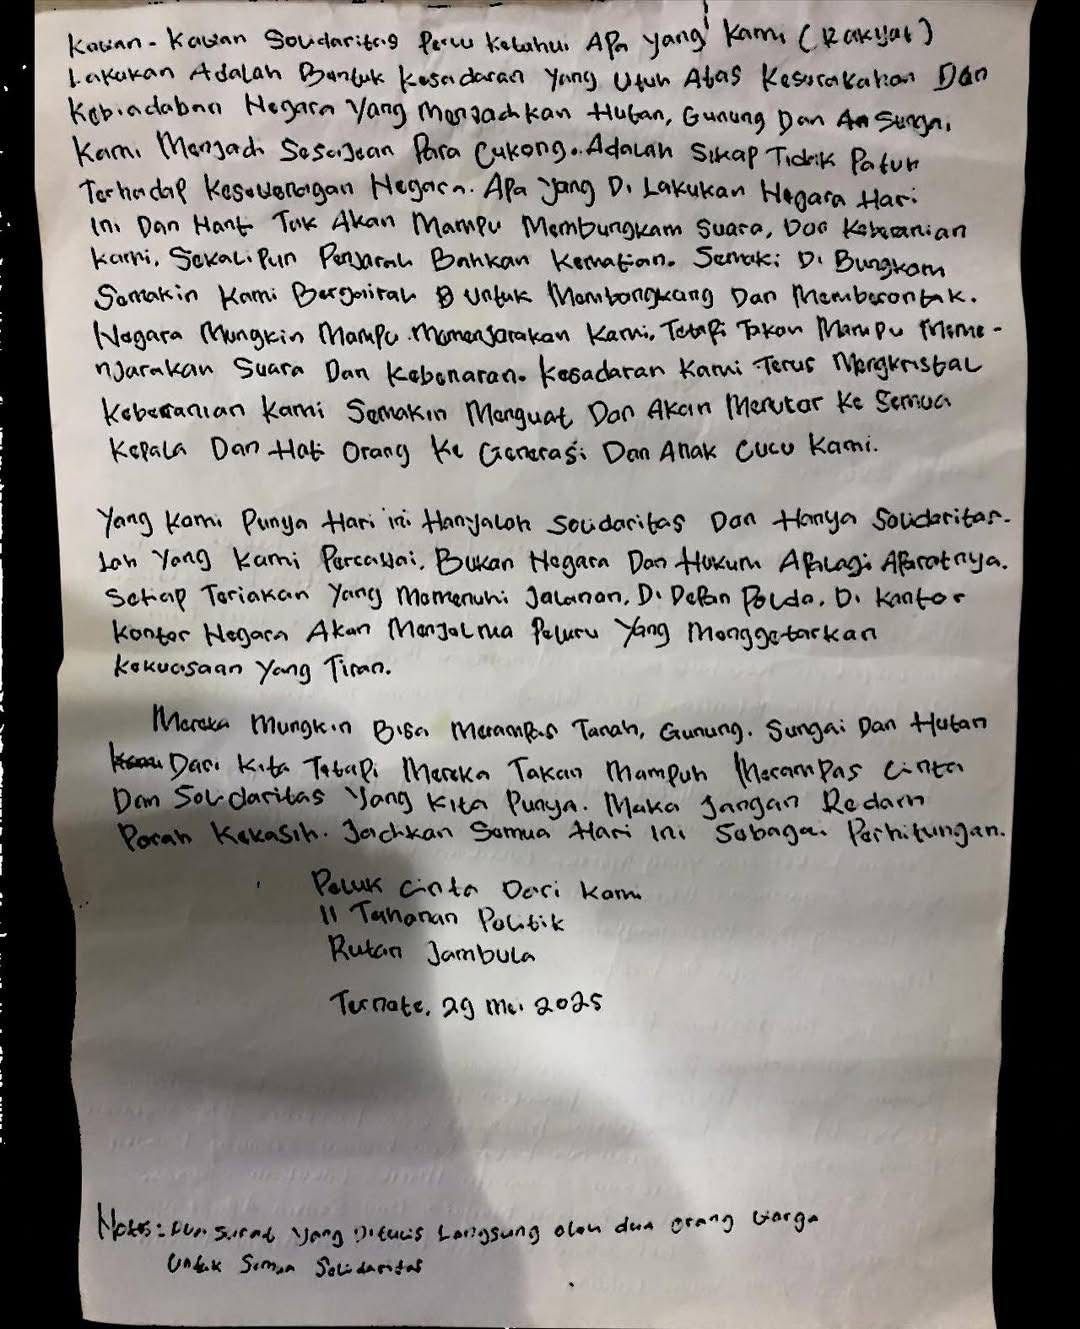 Kawan-Kawan Solidaritas Perlu Ketahui Apa yang Kami (Rakyat)
Lakukan Adalah Bentuk Kesadaran Yang Utuh Atas Keserakahan Dan
Kebiadaban Negara Yang Menjadikan Hutan, Gunung Dan Sungai,
Kami Menjadi Sesajean Para Cukong. Adalah Sikap Tidak Patuh
Terhadap Kesewenangan Negara. Apa Yang Di Lakukan Negara Hari
Ini Dan Nanti Tak Akan Mampu Membungkam Suara, Dan Keberanian
Kami, Sekalipun Penjarah Bahkan Kematian. Semaki Di Bungkam
Semakin Kami Bergairah Untuk Membongkang Dan Memberontak.
Negara Mungkin Mampu Memenjarakan Kami, Tetapi Takan Mampu Meme-
njarakan Suara Dan Kebenaran. Kesadaran Kami Terus Mengkristal
Keberanian Kami Semakin Menguat Dan Akan Menular Ke Semua
Kepala Dan Hati Orang Ke Generasi Dan Anak Cucu Kami.
Yang Kami Punya Hari ini Hanyalah Solidaritas Dan Hanya Solidaritas-
Lah Yang Kami Percayai. Bukan Negara Dan Hukum Apalagi Aparatnya.
Setiap Teriakan Yang Memenuhi Jalanan, Di Depan Polda, Di Kantor
Kantor Negara Akan Menjelma Peluru Yang Menggetarkan
Kekuasaan Yang Tiran.
Mereka Mungkin Bisa Merampas Tanah, Gunung, Sungai Dan Hutan
Dari Kita Tetapi Mereka Takan Mampuh Merampas Cinta
Dan Solidaritas Yang Kita Punya. Maka Jangan Redam
Perah Kekasih. Jadikan Semua Hari Ini Sebagai Perhitungan.
Peluk Cinta Dari Kami
11 Tahanan Politik
Rutan Jambula
Ternate, 29 Mei 2025
Notes: Surat Yang Ditulis Langsung oleh dua orang Warga
Untuk Semua Solidaritas